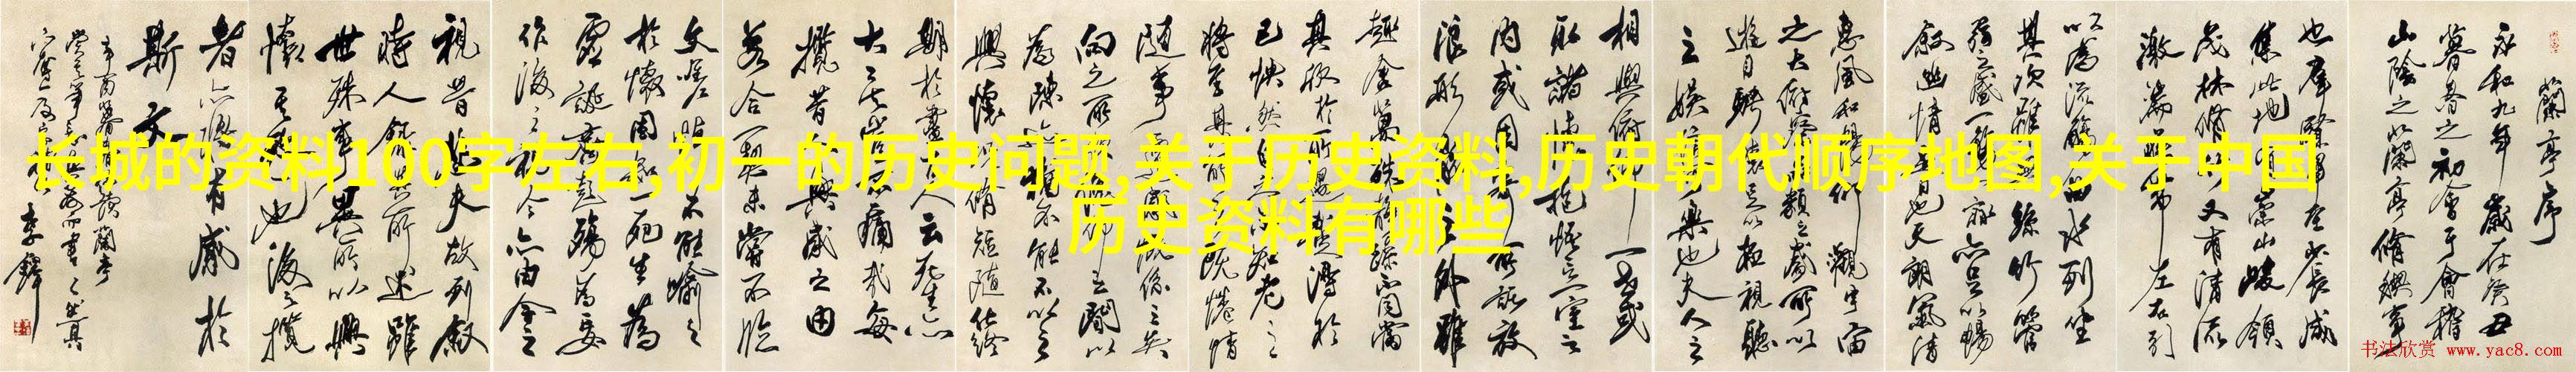 蘭亭序
永和九年歲在癸丑
暮春之初會于會稽
山陰之蘭亭脩禊事
也羣賢畢至少長咸
集此地有崇山峻領
茂林脩竹又有清流
激湍
左右引
以為流觴曲水列坐
其次雖無絲竹管
弦之盛一觴一詠亦足以暢
敘幽情是日也天朗氣清
惠風和暢仰觀宇宙
之大俯察品類之盛所以
遊目騁懷足以極視聽
之娛信可樂也夫人之
相與俯仰一世或
取諸懷抱悟言一室之
內或因寄所託放
浪形骸之外雖
趣舍萬殊靜躁不同當
其欣於所遇暫得於
己快然自足不知老之
將至及其所之既惓情
隨事遷感慨係之矣
向之所欣俛仰之間以
為陳迹猶不能不以之
興懷況脩短隨化終
期於盡古人云死生亦
大矣豈不痛哉每
攬昔人興感之由
若合一契未嘗不臨
文嗟悼不能喻之
於懷固知一死生為
虛誕齊彭殤為妄
作後之視今亦由今之
視昔悲夫故列敘
時人錄其所述雖
世殊事異所以興
懷其致一也後之攬
者亦將有感於
斯文
李鐸
长城的资料100字左右,初一的历史问题,关于历史资料,历史朝代顺序地图,关于中国
历史资料有哪些
书法欣赏 www.yac8.com